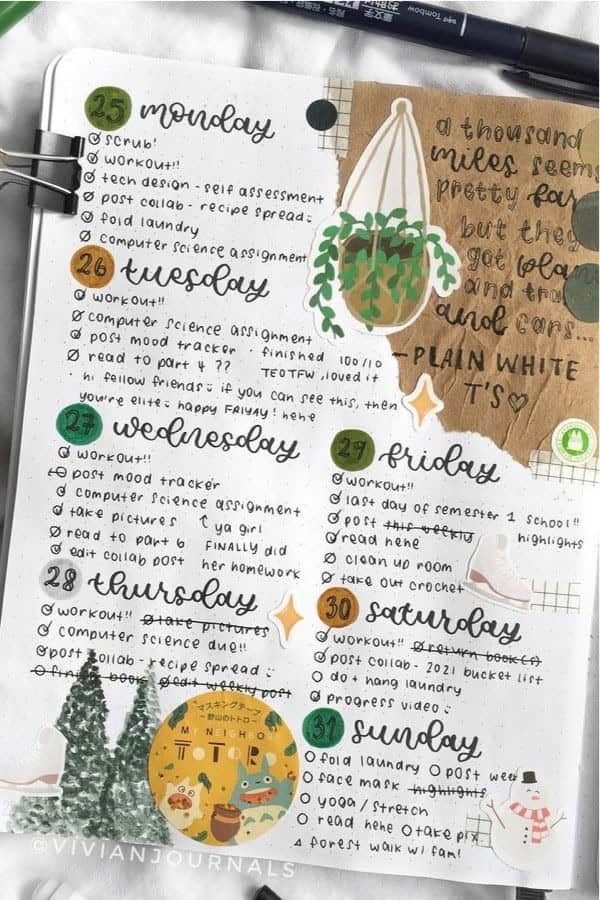 Tombow
筆文字
25 monday
scrub!
workout!!
tech design - self assessment
post collab - recipe spread
fold laundry
computer science assignment
a thousand
miles seems
pretty far
but they
got
and
and cars...
- PLAIN WHITE
T'S
26 tuesday
workout!!
computer science assignment
post mood tracker · finished 100/10
read to part 4 ?? TEOTFW, loved it
· hi fellow friends if you can see this, then
you're elite happy FRIYAY! hehe
27 wednesday
workout!!
post mood tracker
computer science assignment
take pictures ya girl
read to part 6 FINALLY did
edit collab post her homework
28 thursday
workout!! take pictures
computer science due!!
post collab - recipe spread
finish book edit weekly post
29 friday
workout!!
last day of semester 1 school!!
post this weekly highlights
read hehe
clean up room
take out crochet
30 saturday
workout!! return book(s)
post collab - 2021 bucket list
do + hang laundry
progress video
31 sunday
fold laundry post week
face mask highlights
yoga / stretch
read hehe take pix
forest walk w/ fam!
マスキングテープ
~野山のトトロ~
MY NEIGHBOR
TOTORO
©VIVIANJOURNALS